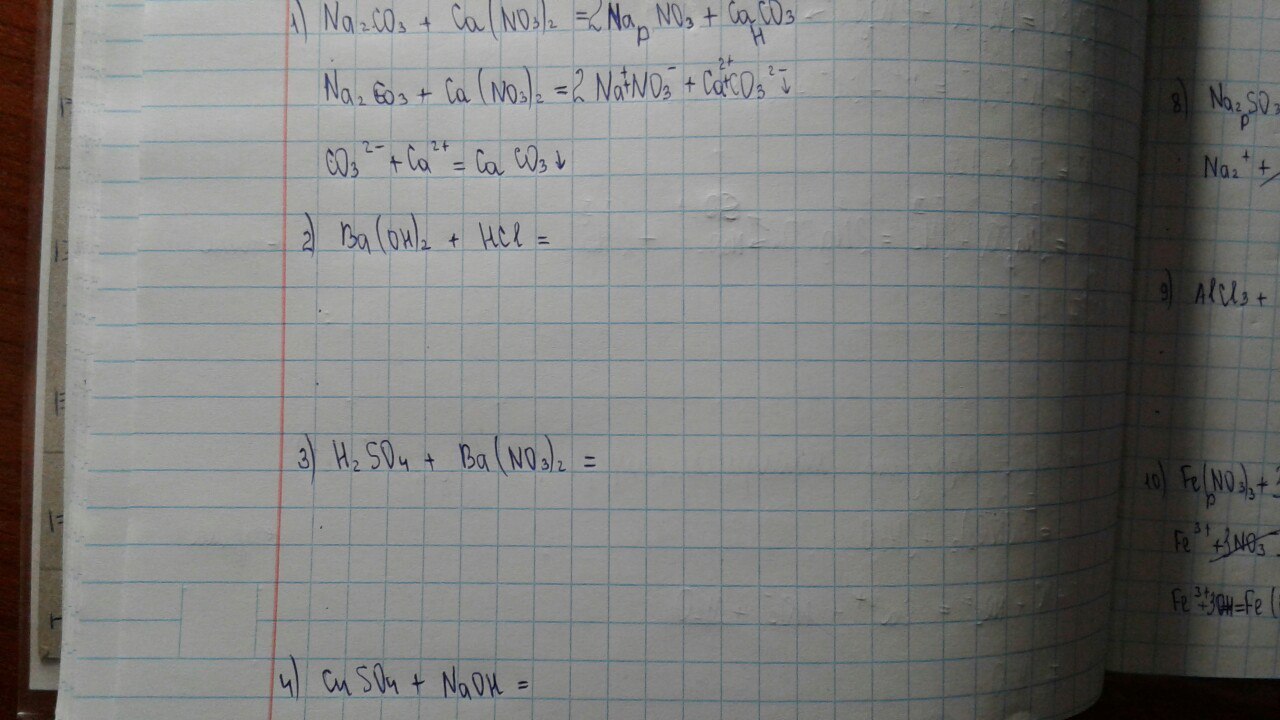 1) Na₂CO₃ + Ca(NO₃)₂ = 2NaNO₃ + CaCO₃
р Н
Na₂CO₃ + Ca(NO₃)₂ = 2Na⁺+NO₃⁻ + Ca²⁺+CO₃²⁻↓
CO₃²⁻ + Ca²⁺ = CaCO₃↓
2) Ba(OH)₂ + HCl =
3) H₂SO₄ + Ba(NO₃)₂ =
4) CuSO₄ + NaOH =
8) Na₂SO₃
р
Na₂⁺ +
9) AlCl₃ +
10) Fe(NO₃)₃ + 3
р
Fe³⁺ + 3NO₃
Fe³⁺+3OH=Fe(